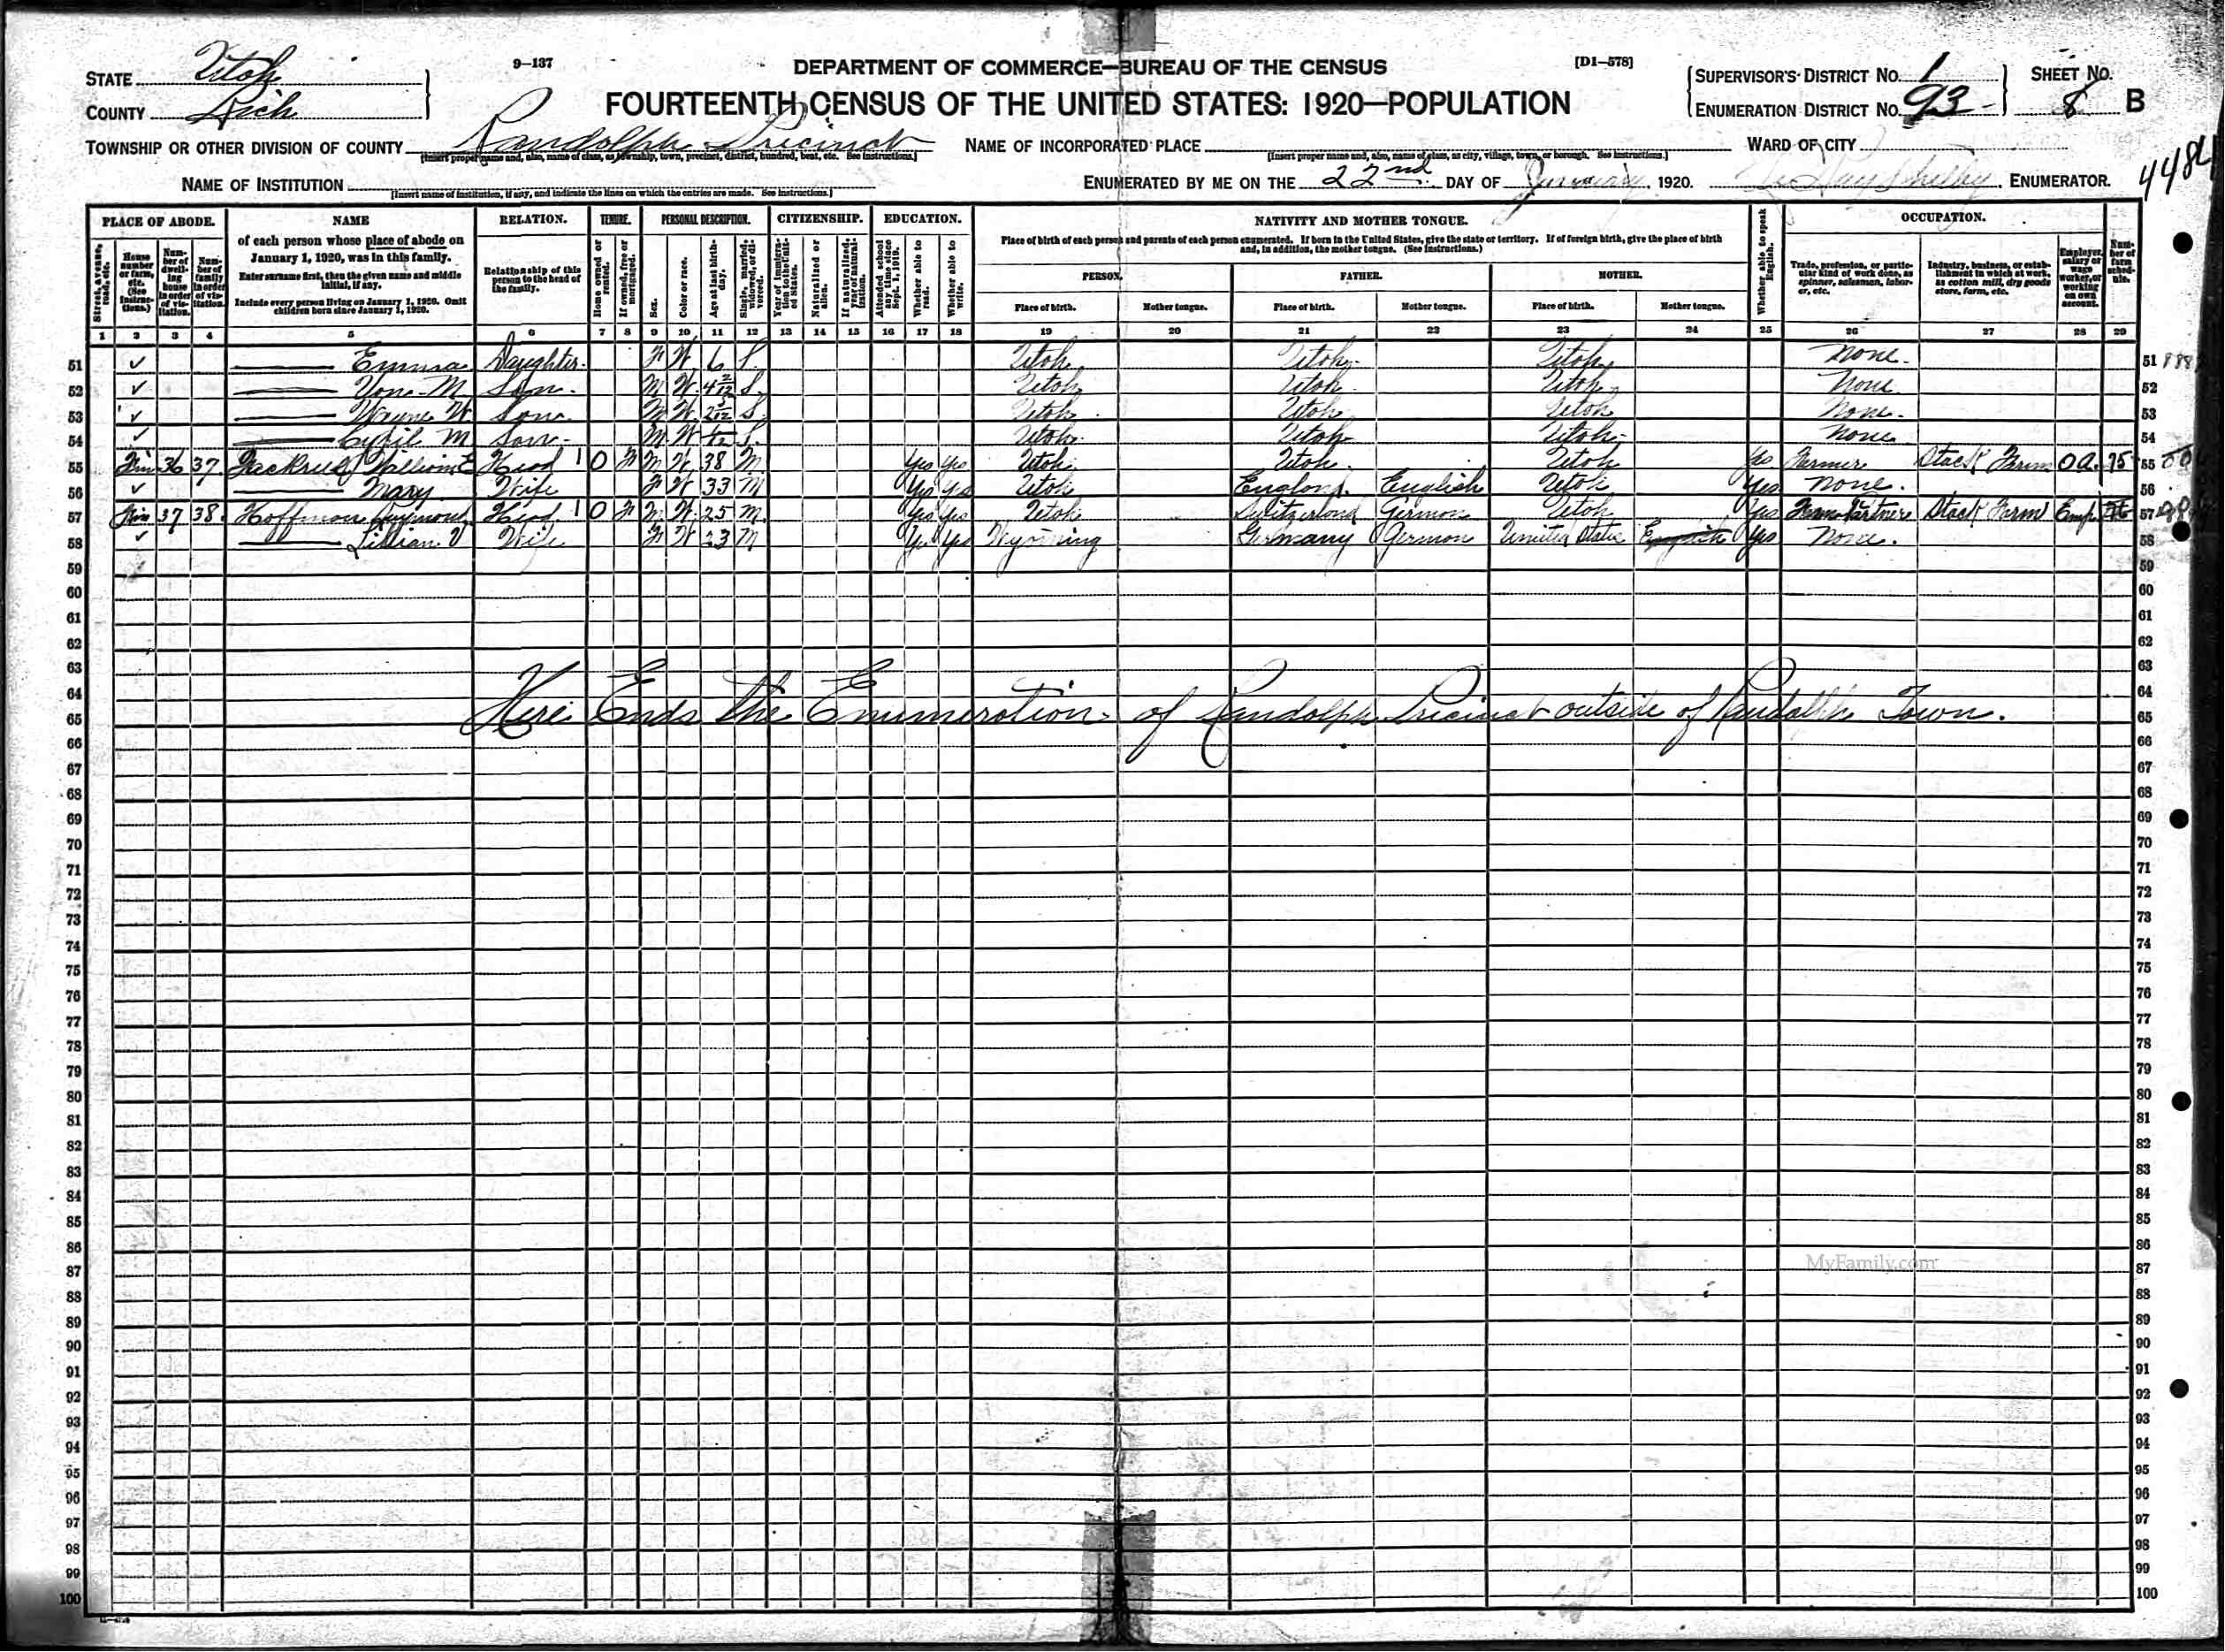 9–137
DEPARTMENT OF COMMERCE—BUREAU OF THE CENSUS
[D1–578]
STATE Utah
COUNTY Rich
FOURTEENTH CENSUS OF THE UNITED STATES: 1920—POPULATION
SUPERVISOR'S DISTRICT NO. 1
ENUMERATION DISTRICT NO. 93
SHEET NO. 8 B
TOWNSHIP OR OTHER DIVISION OF COUNTY Randolph Precinct
[Insert proper name and, also, name of class, as township, town, precinct, district, hundred, beat, etc. See instructions.]
NAME OF INCORPORATED PLACE
[Insert proper name and, also, name of class, as city, village, town, or borough. See instructions.]
WARD OF CITY
4484
NAME OF INSTITUTION
[Insert name of institution, if any, and indicate the lines on which the entries are made. See instructions.]
ENUMERATED BY ME ON THE 22nd DAY OF January, 1920. Shelby, ENUMERATOR.
PLACE OF ABODE. NAME RELATION. TENURE. PERSONAL DESCRIPTION. CITIZENSHIP. EDUCATION. NATIVITY AND MOTHER TONGUE. OCCUPATION.
Street, avenue, road, etc.
House number or farm, etc. (See instructions.)
Number of dwelling house in order of visitation.
Number of family in order of visitation.
of each person whose place of abode on January 1, 1920, was in this family.
Enter surname first, then the given name and middle initial, if any.
Include every person living on January 1, 1920. Omit children born since January 1, 1920.
Relationship of this person to the head of the family.
Home owned or rented.
If owned, free or mortgaged.
Sex.
Color or race.
Age at last birthday.
Single, married, widowed, or divorced.
Year of immigration to the United States.
Naturalized or alien.
If naturalized, year of naturalization.
Attended school any time since Sept. 1, 1919.
Whether able to read.
Whether able to write.
Place of birth of each person and parents of each person enumerated. If born in the United States, give the state or territory. If of foreign birth, give the place of birth and, in addition, the mother tongue. (See instructions.)
PERSON. FATHER. MOTHER.
Place of birth. Mother tongue. Place of birth. Mother tongue. Place of birth. Mother tongue.
Whether able to speak English.
Trade, profession, or particular kind of work done, as spinner, salesman, laborer, etc.
Industry, business, or establishment in which at work, as cotton mill, dry goods store, farm, etc.
Employer, salary or wage worker, or working on own account.
Number of farm schedule.
1 2 3 4 5 6 7 8 9 10 11 12 13 14 15 16 17 18 19 20 21 22 23 24 25 26 27 28 29
51 ✓ Emma Daughter F W 6 S Utah Utah Utah None 51
52 ✓ Von M Son M W 4 2/12 S Utah Utah Utah None 52
53 ✓ Wayne W Son M W 2 5/12 S Utah Utah Utah None 53
54 ✓ Cybil M Son M W S Utah Utah Utah None 54
55 Fm 36 37 William E Head 1 O F M W 38 M Yes Yes Utah Utah Utah Yes Farmer Stock Farm OA 75 55
56 ✓ Mary Wife F W 33 M Yes Yes Utah England English Utah Yes None 56
57 Fm 37 38 Hoffman Raymond Head 1 O F M W 25 M Yes Yes Utah Switzerland German Utah Yes Stock Farm Emp 76 57
58 ✓ Lillian V Wife F W 23 M Yes Yes Wyoming Germany German United States English Yes None 58
59 59
60 60
61 61
62 62
63 63
64 64
Here Ends the Enumeration of Randolph Precinct outside of Randolph Town.
65 65
66 66
67 67
68 68
69 69
70 70
71 71
72 72
73 73
74 74
75 75
76 76
77 77
78 78
79 79
80 80
81 81
82 82
83 83
84 84
85 85
86 86
MyFamily.com
87 87
88 88
89 89
90 90
91 91
92 92
93 93
94 94
95 95
96 96
97 97
98 98
99 99
100 100